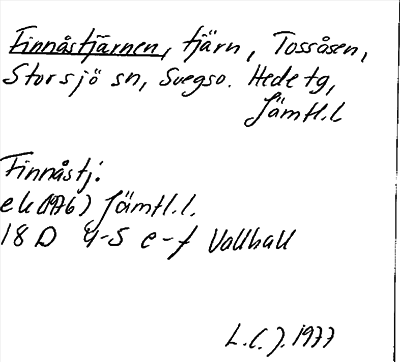 Finnåstjärnen, tjärn, Tossåsen,
Storsjö sn, Svegso. Hede tg,
Jämtl.l
Finnåstj.
ek(1976) Jämtl.l.
18 D 4-5 e-f Vallhall
L.C.J. 1977